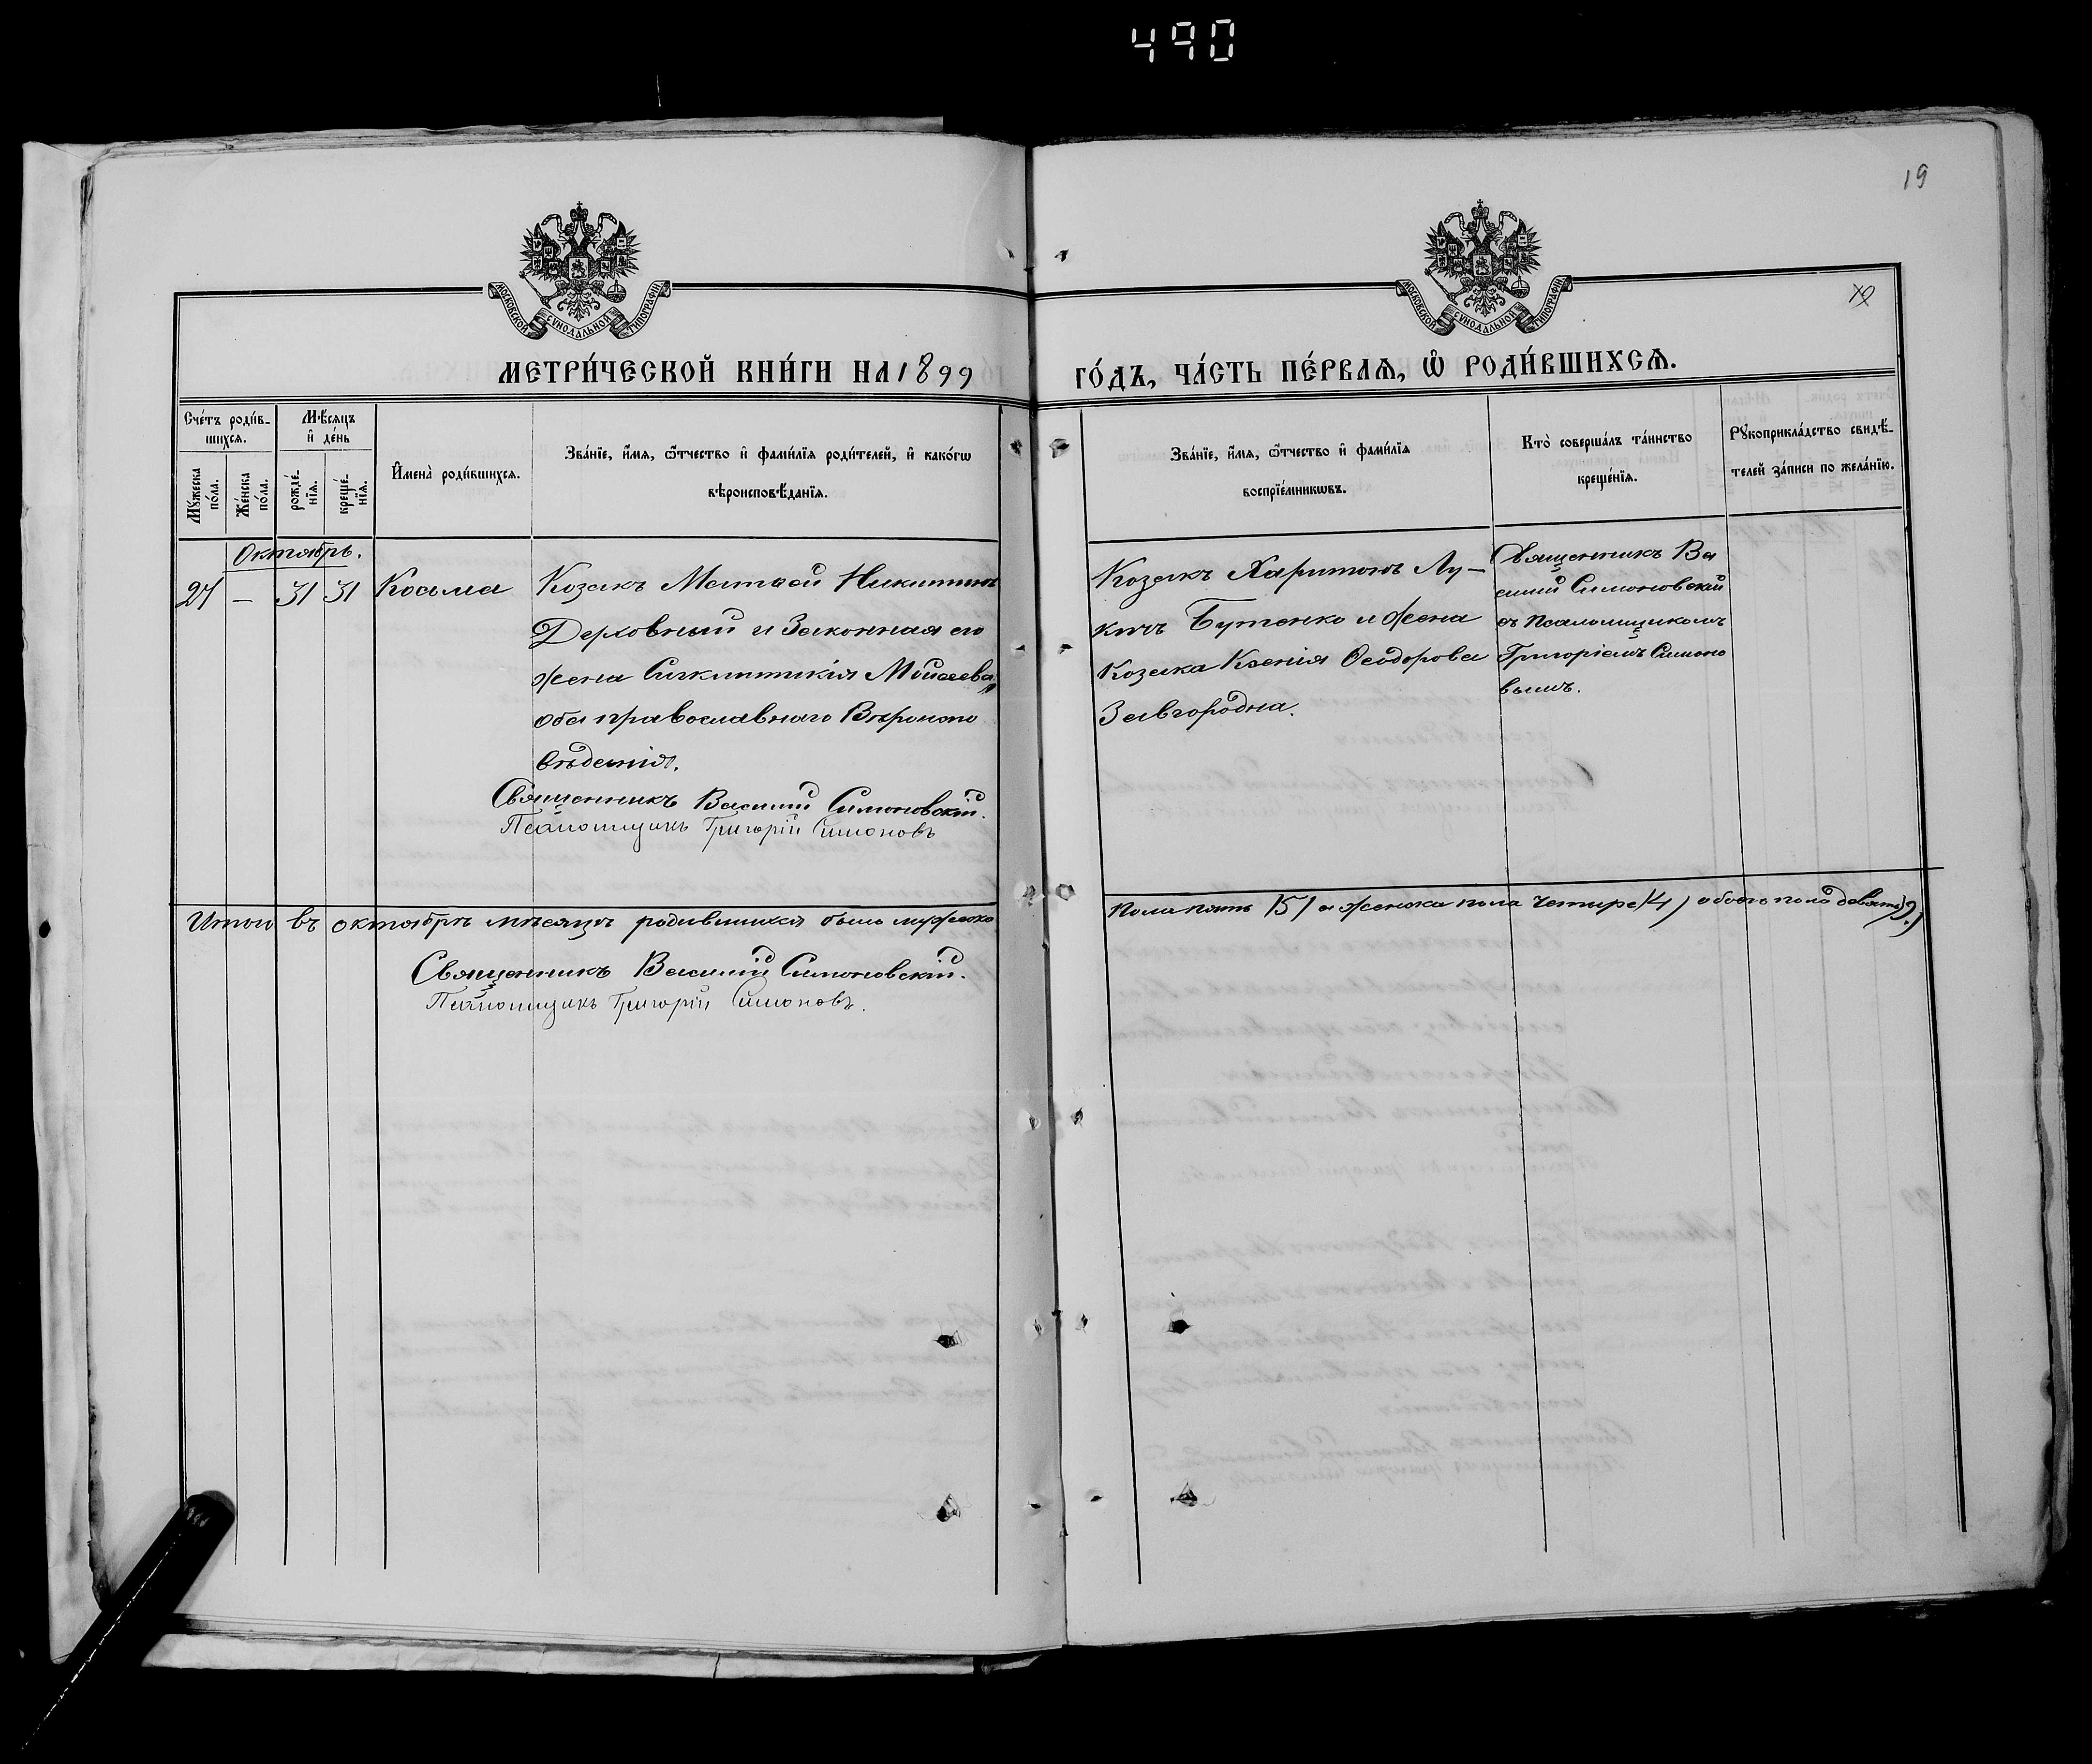 490
19
19
МОСКОВСКОЙ СУНОДАЛЬНОЙ ТИПОГРАФІИ
МОСКОВСКОЙ СУНОДАЛЬНОЙ ТИПОГРАФІИ
МЕТРИ́ЧЕСКОЙ КНИ́ГИ НА 1899
ГО́ДЪ, ЧА́СТЬ ПЕ́РВАѦ, Ѽ РОДИ́ВШИХСѦ.
Сче́тъ роди́в-
шихся.
Мꙋ́жеска по́ла.
Же́нска по́ла.
Мѣ́сяцъ и҆ де́нь
рожде́-нїя.
креще́-нїя.
И҆мена̀ роди́вшихся.
Зва́нїе, и҆́мя, ѻ҆́тчество и҆ фами́лїя роди́телей, и҆ како́гѡ
вѣроисповѣ́данїя.
Зва́нїе, и҆́мя, ѻ҆́тчество и҆ фами́лїя
воспрїе́мникѡвъ.
Кто̀ соверша́лъ та́инство
креще́нїя.
Рꙋкоприкла́дство свидѣ́-
телей за́писи по жела́нїю.
Октябрь.
27 — 31 31 Косма
Козакъ Матѳей Никитинъ
Держовный и Законная его
жена Сигклитикія Моисеева,
оба православнаго Вѣроиспо
вѣданія.
Священникъ Василій Симоновскій.
Псаломщикъ Григорій Симоновъ
Козакъ Харитонъ Лу-
кичъ Бутенко и жена
Козака Ксенія Ѳеодорова
Завгородна.
Священникъ Ва
силій Симоновскій
съ Псаломщикомъ
Григоріемъ Симоно
вымъ.
Итого въ октябрѣ мѣсяцѣ родившихся было мужеска
пола пять (5) а женска пола четыре (4) обоего пола девять (9.)
Священникъ Василій Симоновскій.
Псаломщикъ Григорій Симоновъ.